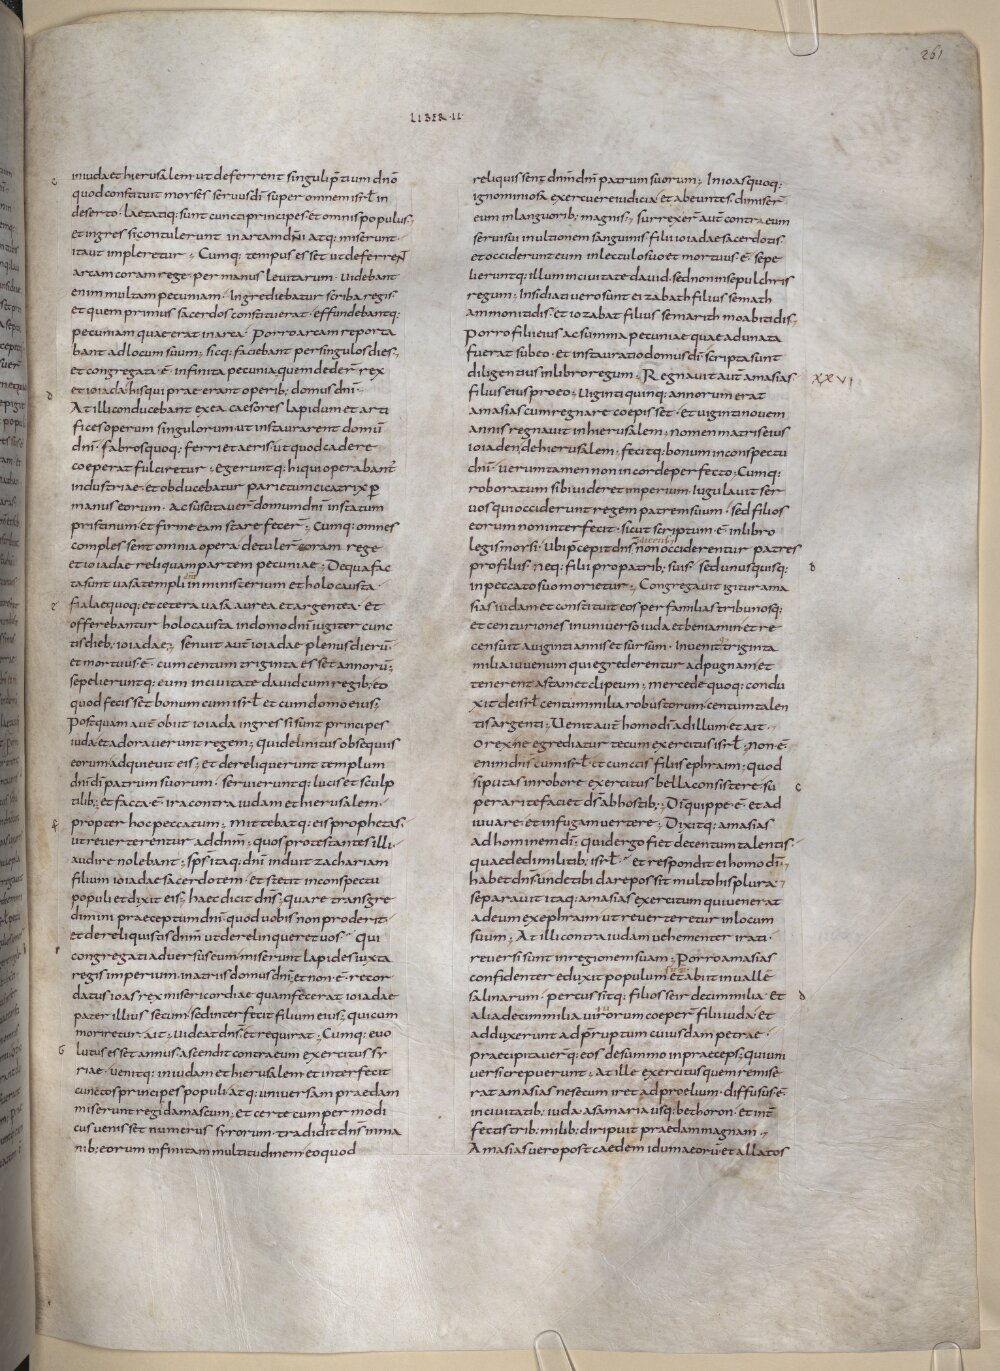 261
LIBER·II·
iniuda et hierusalem ut deferrent singuli p̄tium dn̄o
quod constituit moyses seruus dī super omnem isrl̄ in
deserto· laetatiq; sunt cuncti principes et omnis populus;
et ingressi contulerunt in arcam dn̄i atq; miserunt·
ita ut impleretur; Cumq; tempus esset ut deferrent
arcam coram rege· per manus leuitarum· uidebant
enim multam pecuniam· Ingrediebatur scriba regis·
et quem primus sacerdos constituerat· effundebantq;
pecuniam quae erat in arca· Porro arcam reporta
bant ad locum suum; sicq; faciebant per singulos dies;
et congregata·ē· infinita pecunia quem dederunt rex
et ioiada his qui praeerant operib; domus dn̄i·
At illi conducebant ex ea caesores lapidum et arti
fices operum singulorum· ut instaurarent domū
dn̄i· fabros quoq; ferri et aeris· ut quod cadere
coeperat fulciretur; egeruntq; hi qui operabant̄
industriae· et obducebatur parietum cicatrix p̄
manus eorum· Ac suscitauer̄ domum dn̄i in statum
pristinum· et firme eam stare fecer̄; Cumq; omnes
complessent omnia opera· detuler̄ coram rege
et ioiadae reliquam partem pecuniae; De qua fac
ta sunt uasa templi in ministerium et holocausta·
fialae quoq; et cetera uasa aurea et argentea· Et
offerebantur holocausta in domo dn̄i iugiter cunc
tis dieb; ioiadae; Senuit aut̄ ioiadae plenus dierū·
et mortuus·ē· cum centum triginta esset annorū;
sepelieruntq; eum in ciuitate dauid cum regib; eo
quod fecisset bonum cum isrl̄ et cum domo eius;
Postquam aut̄ obiit ioiada ingressi sunt principes
iuda et adorauerunt regem; Qui delinitus obsequiis
eorum adquieuit eis; et dereliquerunt templum
dn̄i dī patrum suorum· Seruieruntq; lucis et sculp
tilib; et facta·ē· ira contra iudam et hierusalem·
propter hoc peccatum; mittebatq; eis prophetas·
ut reuerterentur ad dn̄m; quos protestantes illi·
audire nolebant; Sp̄s itaq; dn̄i induit zachariam
filium ioiadae sacerdotem· et stetit in conspectu
populi et dixit eis; haec dicit dn̄s; quare transgre
dimini praeceptum dn̄i quod uobis non proderit·
et dereliquistis dn̄m ut derelinqueret uos· Qui
congregati aduersus eum miserunt lapides iuxta
regis imperium· in atriis domus dn̄i; et non·ē· recor
datus ioas rex misericordiae quam fecerat ioiadae
pater illius secum· sed interfecit filium eius; qui cum
moriretur ait; uideat dn̄s; et requirat; Cumq; euo
lutus esset annus ascendit contra eum exercitus sy
riae· uenitq; in iudam et hierusalem· et interfecit
cunctos principes populi· atq; uniuersam praedam
miserunt regi damascum; et certe cum permodi
cus uenisset numerus syrorum· tradidit dn̄s in ma
nib; eorum infinitam multitudinem· eo quod
reliquissent dn̄m dm̄ patrum suorum; In ioas quoq;
ignominiosa exercuere iudicia· et abeuntes dimiser̄
eum in languorib; magnis; Surrexer̄ aut̄ contra eum
serui sui in ultionem sanguinis filii ioiadae sacerdotis·
et occiderunt eum in lectulo suo et mortuus·ē· sepe
lieruntq; illum in ciuitate dauid· sed non in sepulchris
regum; Insidiati uero sunt ei zabath filius semath
ammonitidis· et iozabat filius semarith moabitidis;
Porro filii eius ac summa pecuniae quae adunata
fuerat sub eo· et instauratio domus dī· scripta sunt
diligentius in libro regum; Regnauit aut̄ amasias
XXVI
filius eius pro eo; Uiginti quinq; annorum erat
amasias cum regnare coepisset· et uiginti nouem
annis regnauit in hierusalem; nomen matris eius
ioiaden de hierusalem; fecitq; bonum in conspectu
dn̄i· uerum tamen non in corde perfecto; Cumq;
roboratum sibi uideret imperium· Iugulauit ser
uos qui occiderunt regem patrem suum; sed filios
eorum non interfecit· sicut scriptum·ē· in libro
legis moysi· Ubi p̄cepit dn̄s dicens; non occiderentur patres
pro filiis· neq; filii pro patrib; suis· sed unusquisq;
in peccato suo morietur; Congregauit igitur ama
sias iudam et constituit eos per familias tribunosq;
et centuriones in uniuerso iuda et beniamin· et re
censuit a uiginti annis et sursum· Inuenitq; triginta
milia iuuenum qui egrederentur ad pugnam et
tenerent astam et clipeum; mercede quoq; condu
xit de isrl̄ centum milia robustorum· centum talen
tis argenti; Uenit aut̄ homo dī ad illum et ait·
O rex ne egrediatur tecum exercitus isrl̄; non·ē·
enim dn̄s cum isrl̄ et cunctis filiis ephraim; quod
si putas in robore exercitus bella consistere· su
perari te faciet ds̄ ab hostib; Dī quippe·ē· et ad
iuuare· et in fugam uertere; Dixitq; amasias
ad hominem dī; quid ergo fiet de centum talentis·
quae dedi militib; isrl̄· et respondit ei homo dī;
habet dn̄s unde tibi dare possit multo his plura;
separauit itaq; amasias exercitum qui uenerat
ad eum ex ephraim ut reuerteretur in locum
suum; At illi contra iudam uehementer irati·
reuersi sunt in regionem suam; Porro amasias
confidenter eduxit populum suum et abiit in uallē
salinarum· percussitq; filios seir decim milia· et
alia decim milia uirorum coeper̄ filii iuda· et
adduxerunt ad p̄ruptum cuiusdam petrae·
praecipitauer̄q; eos de summo in praeceps; qui uni
uersi crepuerunt; At ille exercitus quem remise
rat amasias ne secum iret ad proelium· diffusus·ē·
in ciuitatib; iuda· a samaria usq; bethoron· et int̄
fectis trib; milib; diripuit praedam magnam;
Amasias uero post caedem idumaeorū· et allatos